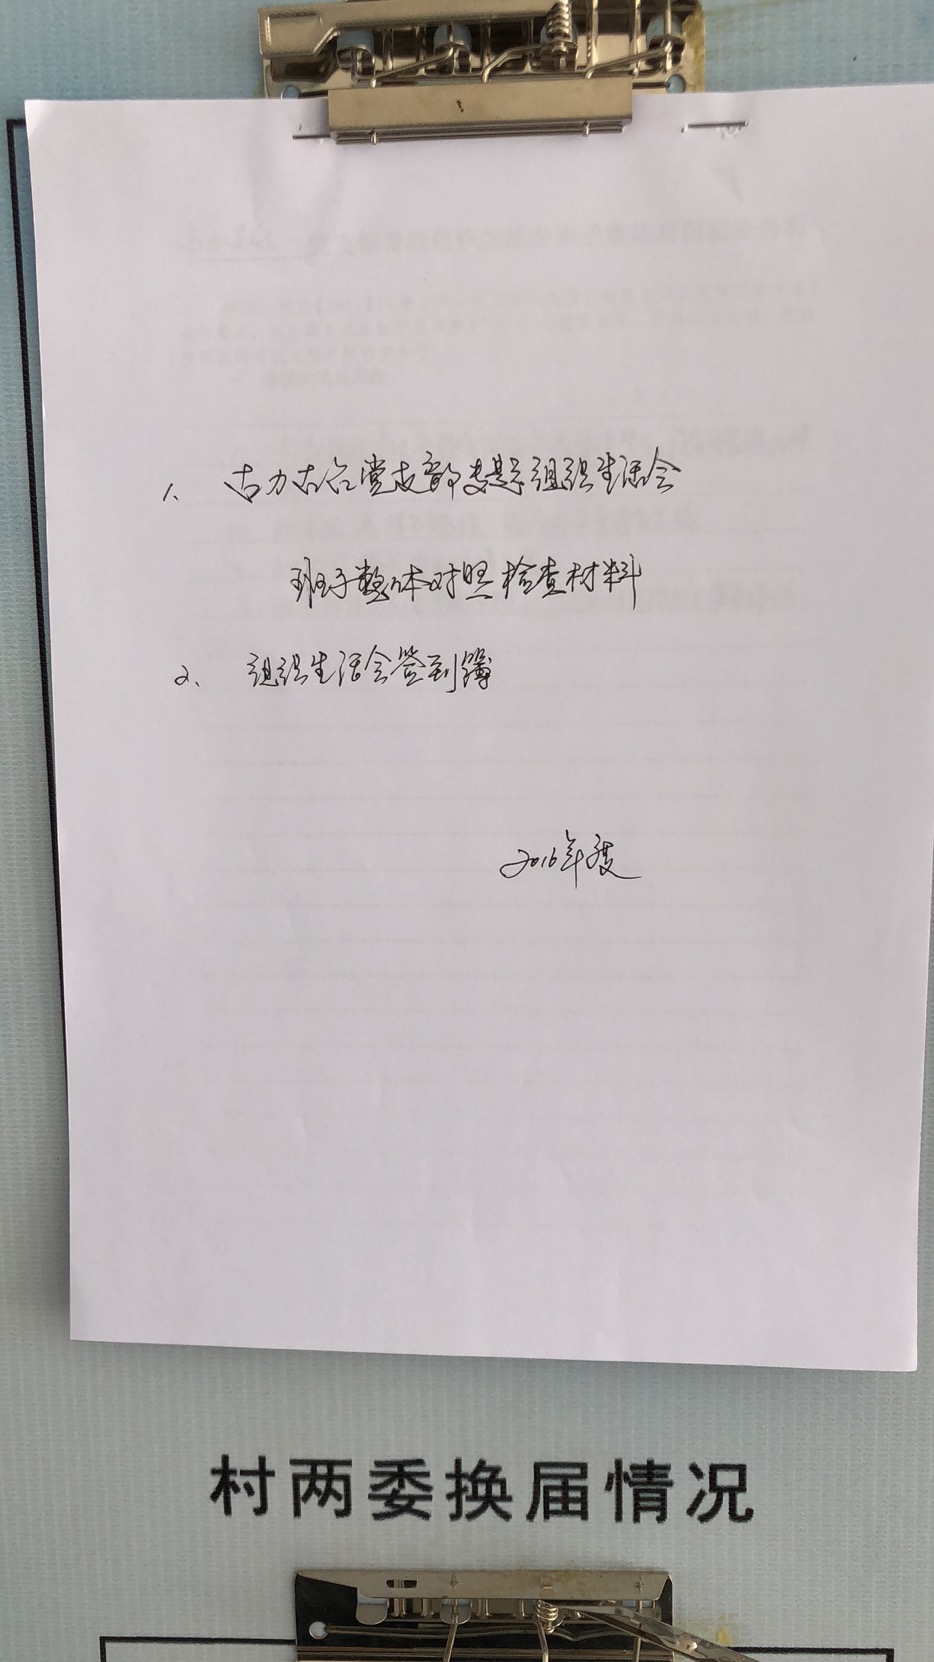 1、 古力古台党支部委员会组织生活会
班子整体对照检查材料
2、 组织生活会签到簿
2016年度
村两委换届情况